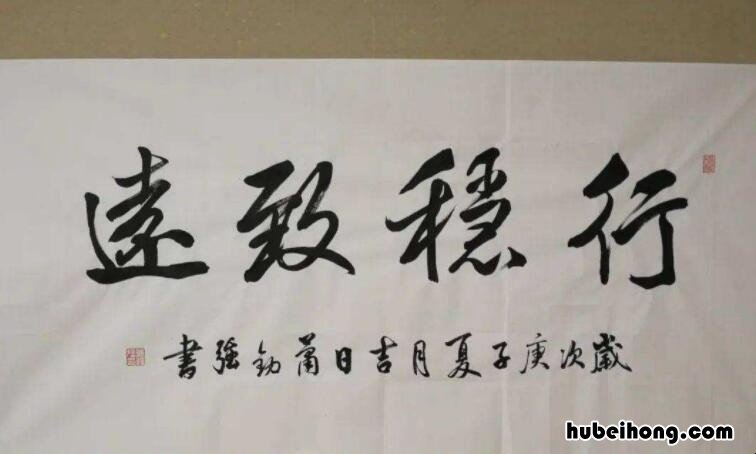 行穩致遠
歲次庚子夏月吉日蕭劍強書
hubeihong.com